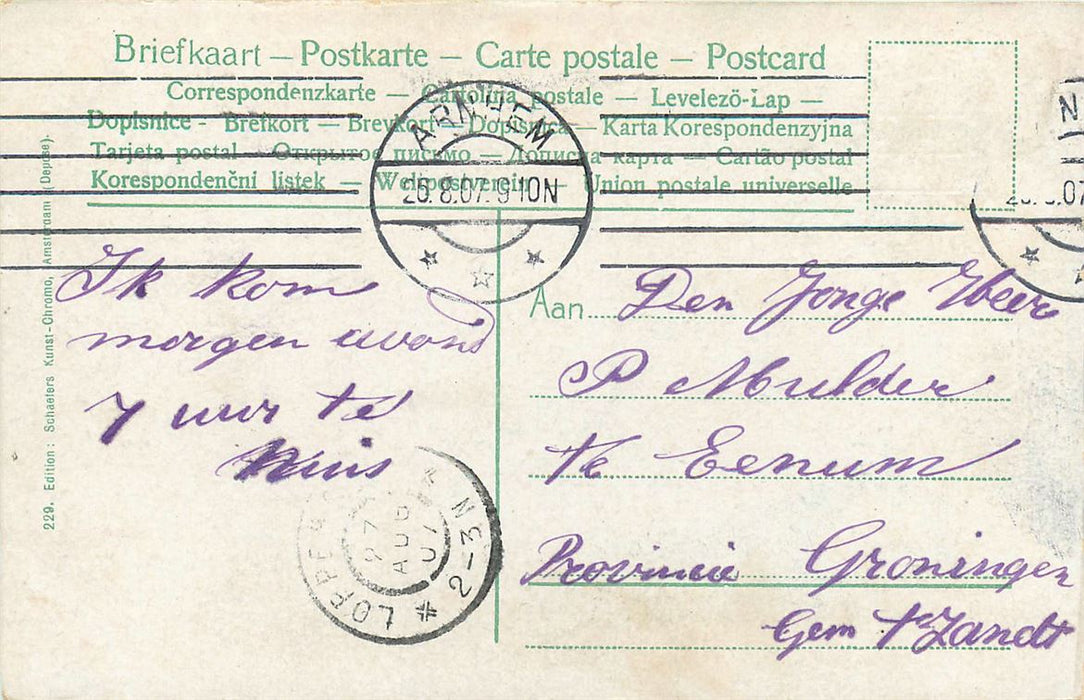 Briefkaart — Postkarte — Carte postale — Postcard
Correspondenzkarte — Cartolina postale — Levelező-Lap —
Dopisnice - Brefkort — Brevkort — Dopisnica — Karta Korespondenzyjna
Tarjeta postal — Открытое письмо — Дописна карта — Cartão postal
Korespondenčni listek — Weltpostverein — Union postale universelle
ARNHEM
26.8.07. 9-10N
N
.07
229. Edition: Schaefers Kunst-Chromo, Amsterdam (Depose).
Ik kom
morgen avond
7 uur te
huis
Aan Den Jonge Heer
P Mulder
te Eenum
Provincie Groningen
Gem t Zandt
LOPPE
27
AUG
07
2-3 N